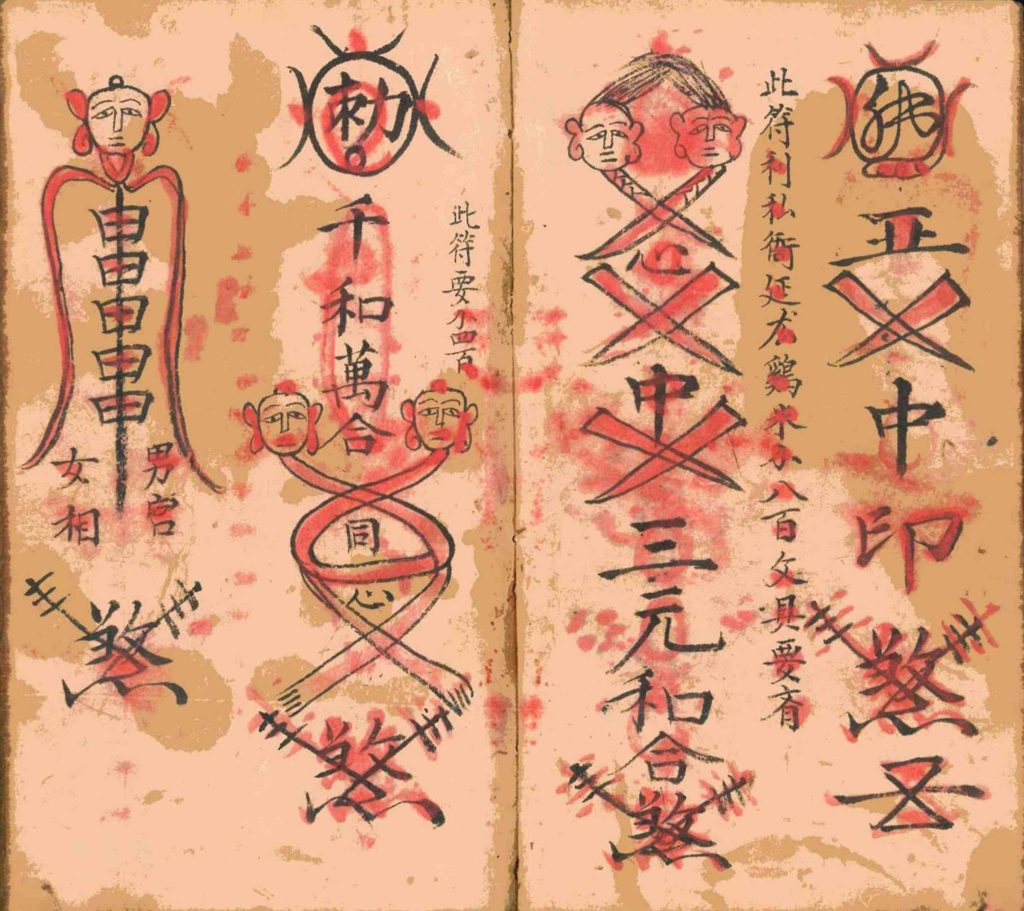 佛亚中印煞
此符利私衙廷鷄米八百文具要有
心中三元和合煞
此符要四百
勅千和萬合同心煞
申申申申申
男官
女相
煞